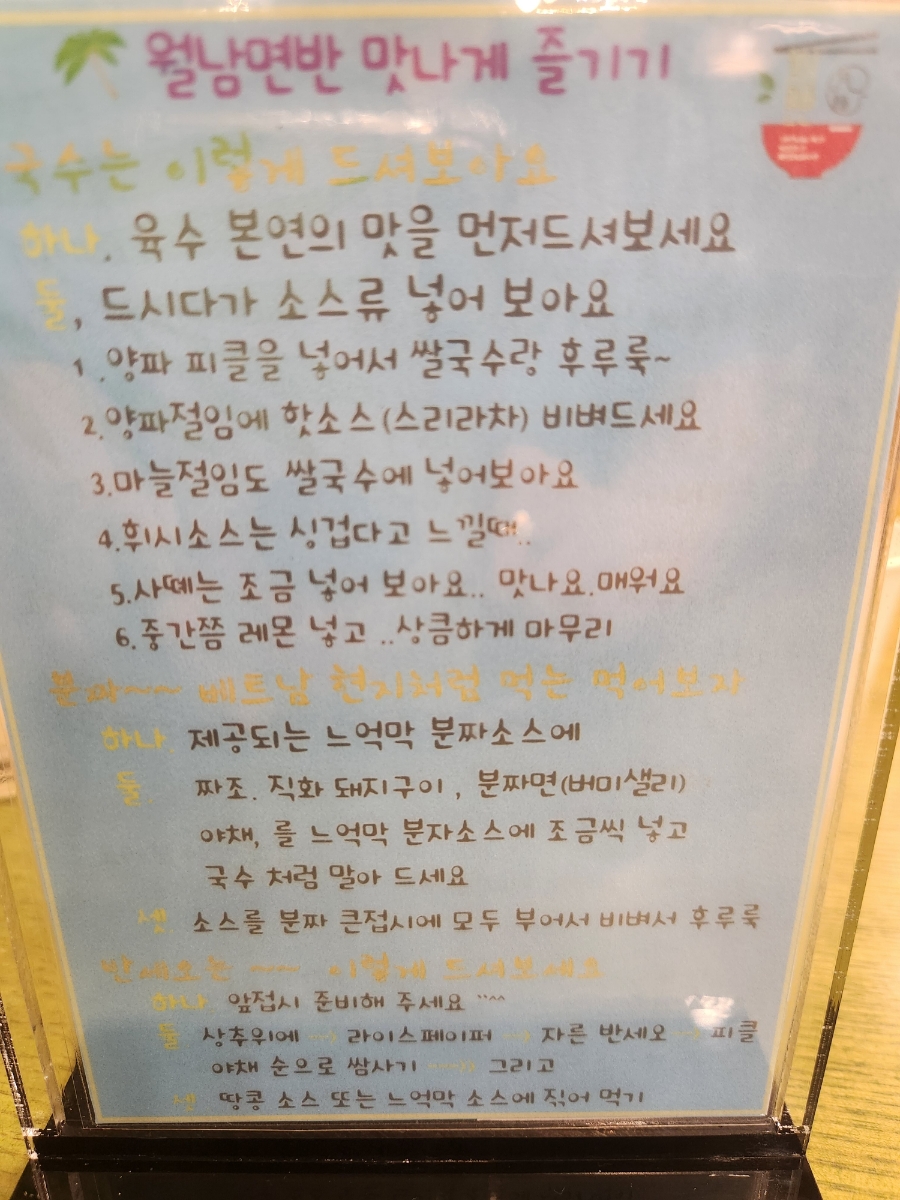 월남면반 맛나게 즐기기
국수는 이렇게 드셔보아요
하나. 육수 본연의 맛을 먼저드셔보세요
둘, 드시다가 소스류 넣어 보아요
1.양파 피클을 넣어서 쌀국수랑 후루룩~
2.양파절임에 핫소스(스리라차) 비벼드세요
3.마늘절임도 쌀국수에 넣어보아요
4.휘시소스는 싱겁다고 느낄때..
5.사떼는 조금 넣어 보아요.. 맛나요.매워요
6.중간쯤 레몬 넣고 ..상큼하게 마무리
분짜~~~ 베트남 현지처럼 먹는 먹어보자
하나. 제공되는 느억막 분짜소스에
둘. 짜조. 직화 돼지구이, 분짜면(버미샐리)
야채, 를 느억막 분자소스에 조금씩 넣고
국수 처럼 말아 드세요
셋. 소스를 분짜 큰접시에 모두 부어서 비벼서 후루룩
반세오는 ~~~ 이렇게 드셔보세요
하나. 앞접시 준비해 주세요 ^^~
둘. 상추위에 → 라이스페이퍼 → 자른 반세오 → 피클
야채 순으로 쌈사기 ----> 그리고
셋. 땅콩 소스 또는 느억막 소스에 직어 먹기